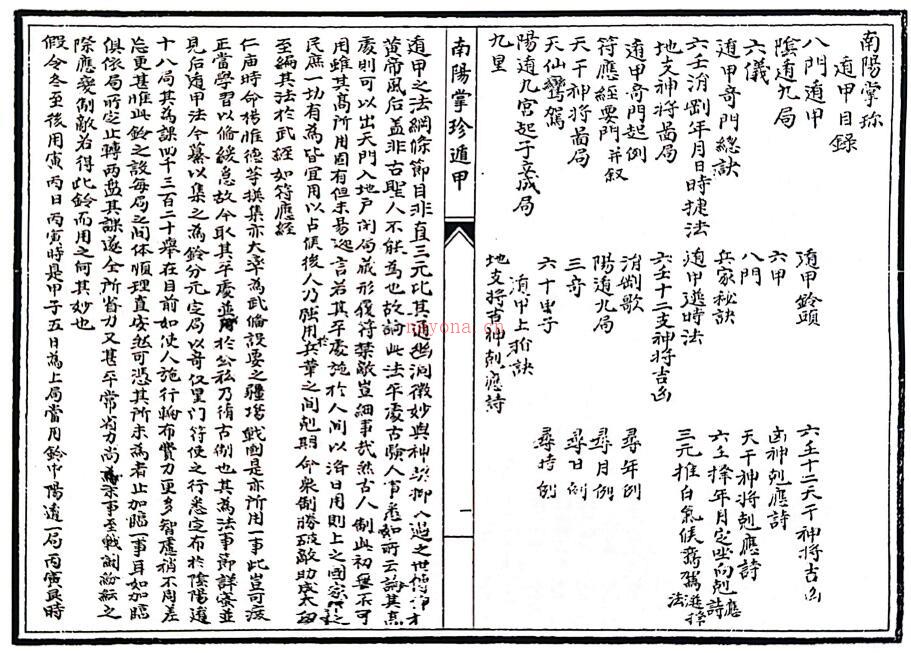 南陽掌珍
遁甲目錄
八門遁甲 遁甲鈴頭 六壬十二天干神將吉凶
陰遁九局 六甲 凶神剋應詩
六儀 八門 天干神將剋應詩
遁甲奇門總訣 兵家秘訣 六壬擇年月定坐向剋應詩
六壬消劉年月日時捷法 遁甲選時法 三元推白氣候鸞駕選擇法
地支神將啚局 六壬十二支神將吉凶
遁甲奇門起例 消劉歌 尋年例
符應經要門并叙 陽遁九局 尋月例
天干神將啚局 三奇 尋日例
天仙鸞駕 六十甲子 尋時例
陽遁九宮起于立成局 遁甲上訣
九星 地支將吉神剋應詩
南陽掌珍遁甲
一
遁甲之法綱條節目非直三元比其通幽洞微妙與神契抑人過之世傳
黃帝風后蓋非古聖人不能為也故詞此法平處古驗人事悉如所云論其高
處則可以出天門入地戶閉局藏形復符禁敵豈細事哉然古人制此初要不可
用雖其高所用固有但未易遽言若其平處施於人間以洛日用則上之國家下之
民庶一切有為皆宜用以占候後人乃強用兵革之間剋期命衆制勝破敵助成太
至編其法於武經如符應經
仁庙時命楊惟德等撰集亦大率為武俻設要之疆場戰國是亦所用一事此豈可廢
正當學習以俻緩急故今取其平處並於公私乃待古例也其為法事節詳密並
見后遁甲法今纂以集之為鈴分元定局以奇仪星门符使之行悉定布於陰陽遁
十八局其為課四千三百二十舉在目前如使人施行轉布費力更多智慮稍不周差
忘更甚惟此鈴之設每局之间体順理直安然可憑其所未為者止加臨一事耳如加臨
俱依局所定止轉兩盤其課遂全所省力又甚平常省力尚為示事至戰闘紛紜之
際應变制敵若得此鈴而用之何其妙也
假令冬至後用寅丙日丙寅時是甲子五日為上局當用鈴中陽遁一局丙寅辰時
nayona.cn